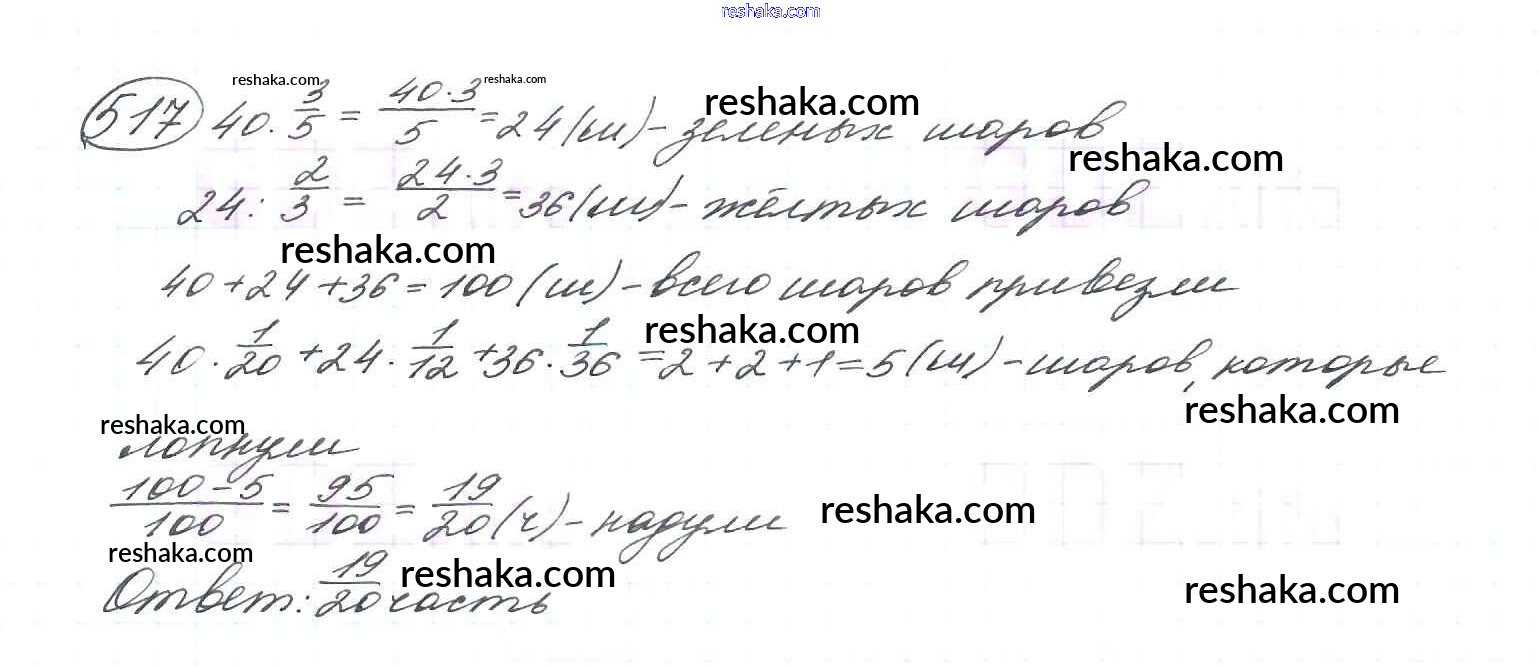 reshaka.com
reshaka.com reshaka.com
517 40 · 3/5 = 40·3/5 = 24 (ш) - зеленых шаров
reshaka.com
reshaka.com
24 : 2/3 = 24·3/2 = 36 (ш) - жёлтых шаров
reshaka.com
40 + 24 + 36 = 100 (ш) - всего шаров привезли
reshaka.com
40 · 1/20 + 24 · 1/12 + 36 · 1/36 = 2 + 2 + 1 = 5 (ш) - шаров, которые
reshaka.com
reshaka.com
лопнули
100 - 5/100 = 95/100 = 19/20 (ч) - надули
reshaka.com
reshaka.com
Ответ: 19/20 часть
reshaka.com
reshaka.com